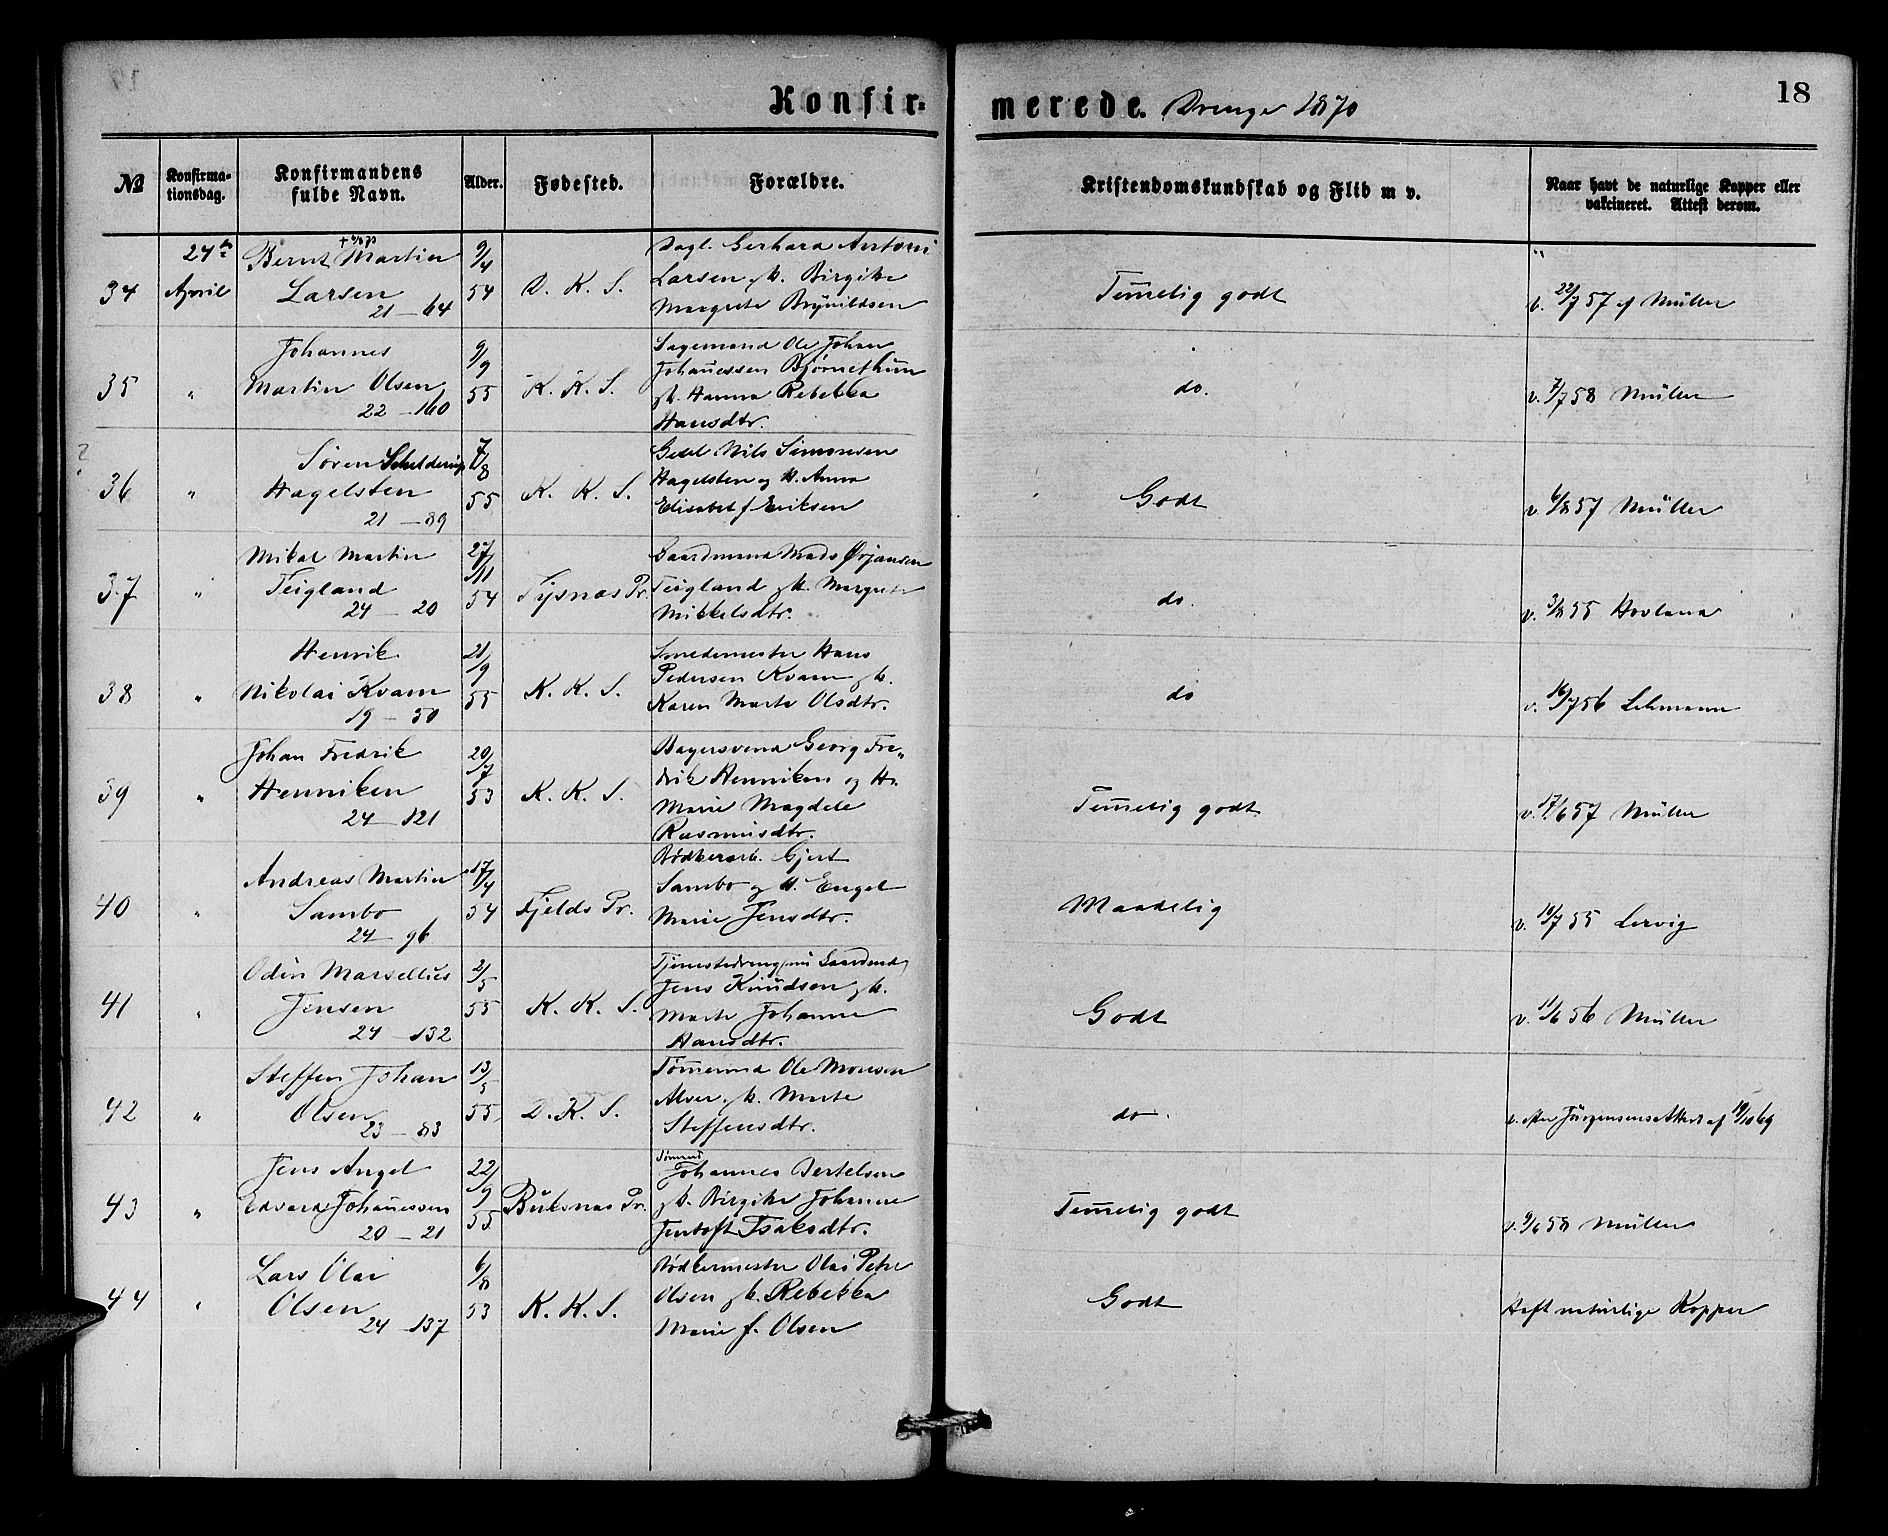 18
Konfir-
merede. Drenge 1870
No
Konfirma-
tionsdag.
Konfirmandens
fulde Navn.
Alder.
Fødested.
Forældre.
Kristendomskundskab og Flid m v.
Naar havt de naturlige Kopper eller
vakcineret. Attest derom.
34
24de
April
Bernt Martin
Larsen
21 - 64
9/4
54
D. K. S.
Dagl. Gerhard Antoni
Larsen, h. Birgithe
Margrete Brynildsen
Temmelig godt
v. 22/7 57 af Müller
35
"
Johannes
Martin Olsen
22 - 160
9/9
55
K. K. S.
Sagemand Ole Johan
Johannessen Bjørnethun
h. Hanna Rebekka
Hansdtr.
do.
v. 7/7 58 Müller
36
"
Søren Schelderup
Hagelsten
21 - 89
7/8
55
K. K. S.
Gesel Nils Simonsen
Hagelsten og h. Anna
Elisabet f. Eriksen
Godt
v. 6/8 57 Müller
37
"
Mikal Martin
Teigland
24 - 20
27/11
54
Tysnæs Pr.
Gaardmand Mads Ørjansen
Teigland h. Margrete
Mikkelsdtr.
do.
v. 3/8 55 Hovland
38
"
Henrik
Nikolai Kvam
19 - 50
21/9
55
K. K. S.
Smedemester Hans
Pedersen Kvam h.
Karen Marte Olsdtr.
do
v. 16/7 56 Lehmann
39
"
Johan Fredrik
Henriken
24 - 121
20/7
53
K. K. S.
Bagersvend Georg Fre-
drik Henriken og H.
Marie Magdele
Rasmusdtr.
Temmelig godt
v. 17/6 57 Müller
40
"
Andreas Martin
Sambo
24 - 96
17/4
54
Fjelds Pr.
Bødkerarb. Gjert
Sambo og H. Engel
Marie Jensdtr.
Maadelig
v. 18/7 55 Lervig
41
"
Odin Marsellius
Jensen
24 - 132
2/5
55
K. K. S.
Tjenestedreng (nu Gaardmd)
Jens Knudsen h.
Marte Johanne
Hansdtr.
Godt
v. 11/6 56 Müller
42
"
Steffen Johan
Olsen
23 - 83
13/5
55
D. K. S.
Tømmermd Ole Monsen
h. Marte
Steffensdtr.
do.
v. efter Jürgensens Attest af 19/10 69
43
"
Jens Angel
Edvard Johannessen
20 - 21
22/9
55
Buksnæs Pr.
Tømmermd
Johannes Bertelsen
h. Birgithe Johanne
Jentoft Isaksdtr.
Temmelig godt
v. 9/6 58 Müller
44
"
Lars Olai
Olsen
24 - 137
6/8
53
K. K. S.
Bødkermester Olai Peter
Olsen h. Rebekka
Marie f. Olsen
Godt
Haft naturlige Kopper